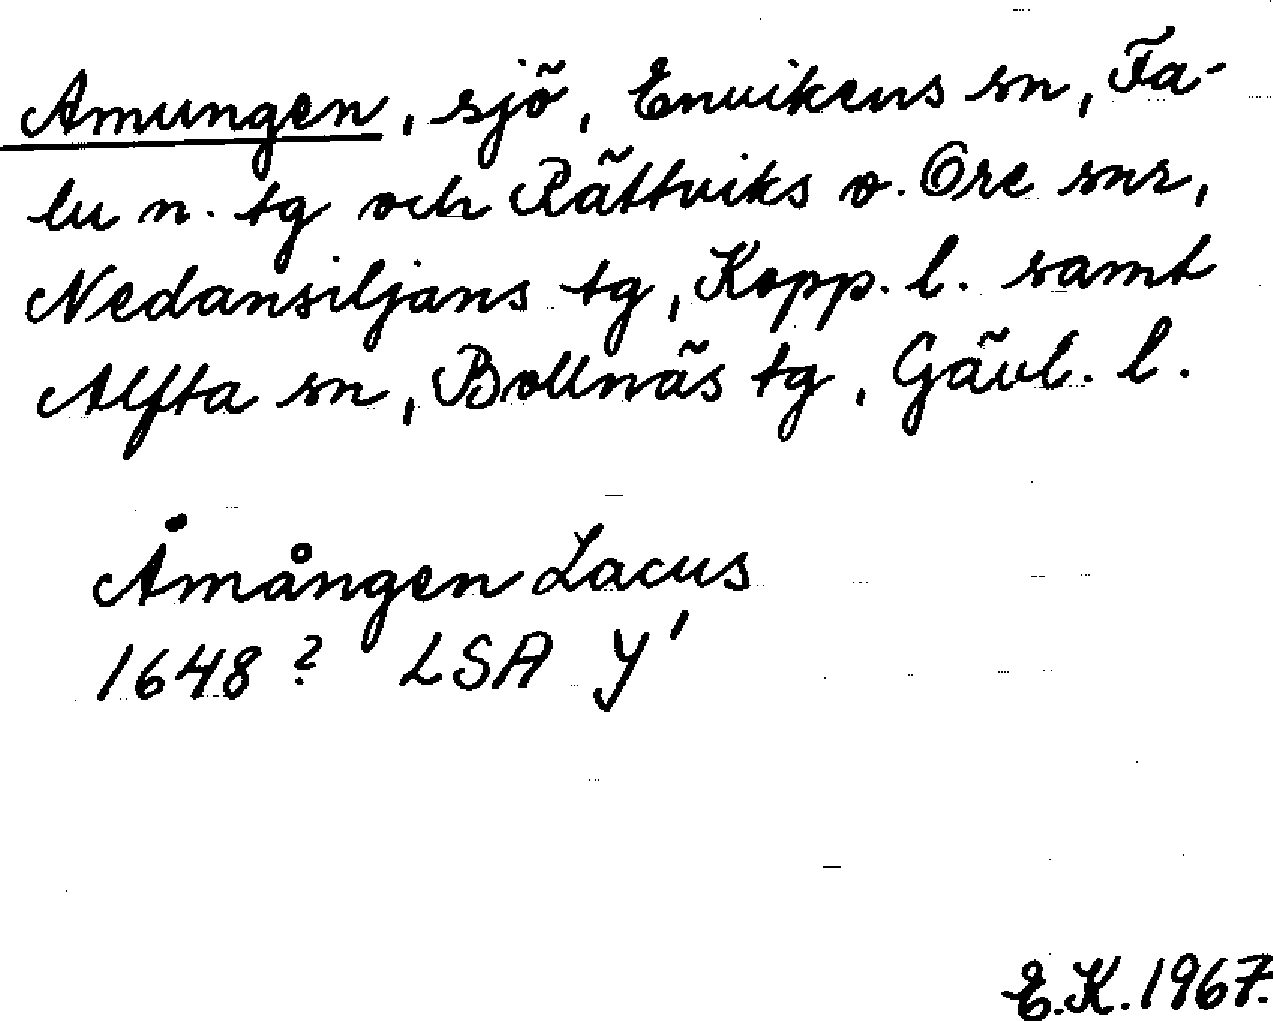 Amungen, sjö, Envikens sn, Fa-
lu n. tg och Rättviks o. Ore snr,
Nedansiljans tg, Kopp. l. samt
Alfta sn, Bollnäs tg, Gävl. l.
Åmången Lacus
1648? LSA Y'
E.K. 1967.